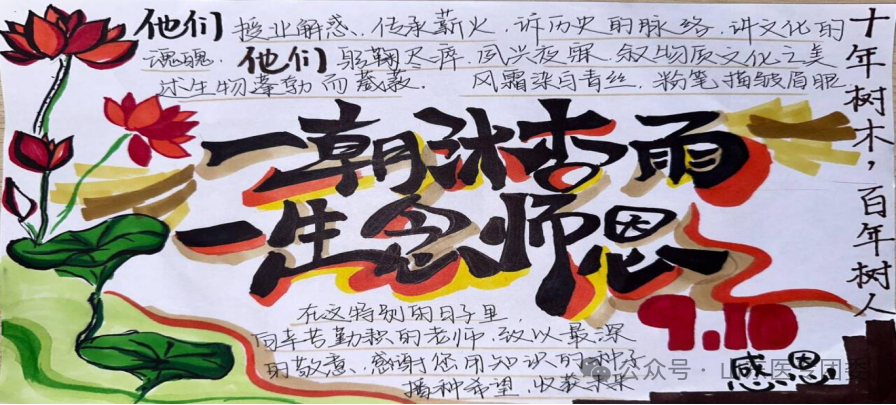 他们授业解惑、传承薪火，诉历史的脉络，讲文化的
魂魄．他们躬鞠尽瘁，夙兴夜寐，叙物质文化之美
述生物蓬勃而葳蕤．风霜染白青丝，粉笔描皱眉眼
十年树木，百年树人
一朝沐杏雨
一生念师恩
在这特别的日子里，
向辛苦勤勤的老师，致以最深
的敬意、感谢您用知识的种子
播种希望，收获未来
9.10
感恩
公众号·山 医 团委